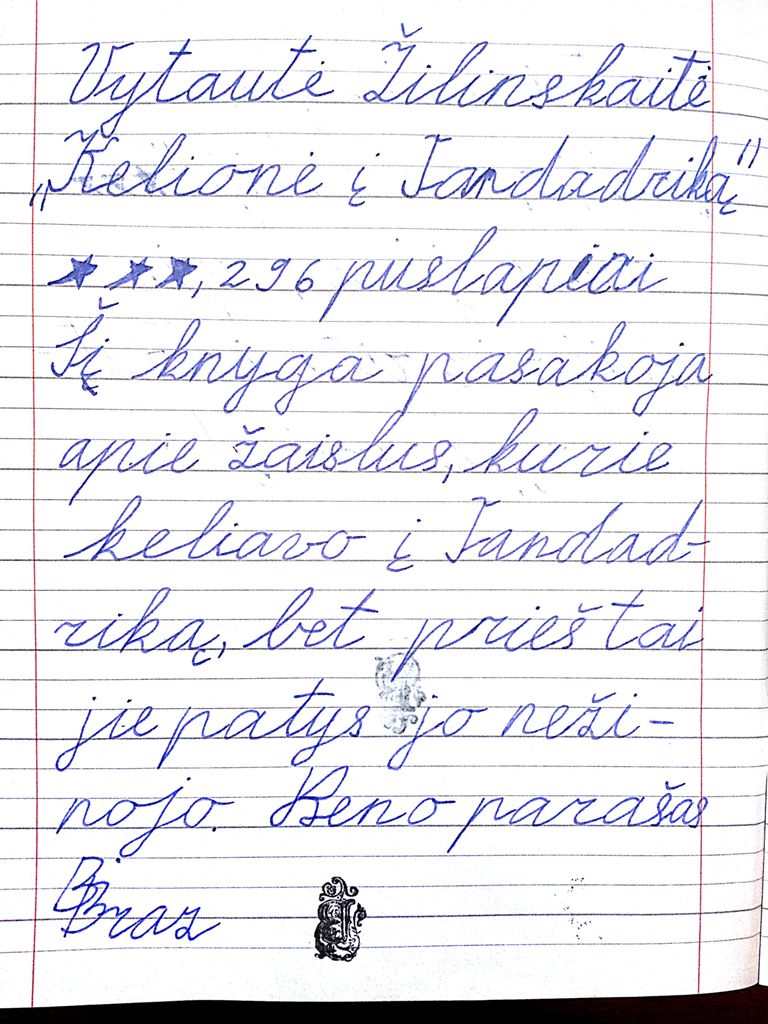 Vytautė Žilinskaitė
„Kelionė į Tandadriką"
★★★, 296 puslapiai
Šį knyga pasakoja
apie žaislus, kurie
keliavo į Tandad-
riką, bet prieš tai
jie patys jo neži-
nojo. Beno parašas
Braz